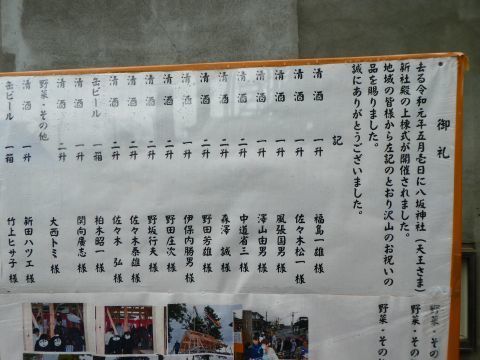 御礼
去る令和元年五月壱日に八坂神社（天王さま）
新社殿の上棟式が開催されました。
地域の皆様から左記のとおり沢山のお祝いの
品を賜りました。
誠にありがとうございました。
記
清酒 一升 福島一雄様
清酒 一升 佐々木松一様
清酒 一升 風張国男様
清酒 一升 澤山由男様
清酒 二升 中道省三様
清酒 二升 森澤誠様
清酒 二升 野田芳雄様
清酒 一升 伊保内勝男様
清酒 二升 野田庄次様
清酒 二升 野坂行夫様
清酒 二升 佐々木泰雄様
清酒 二升 佐々木弘様
缶ビール 一箱 柏木昭一様
清酒 二升 関向廣志様
清酒 二升 大西トミ様
野菜・その他
清酒 一升 新田ハツエ様
缶ビール 一箱 竹上ヒサ子様
野菜・その
野菜・その
野菜・そ